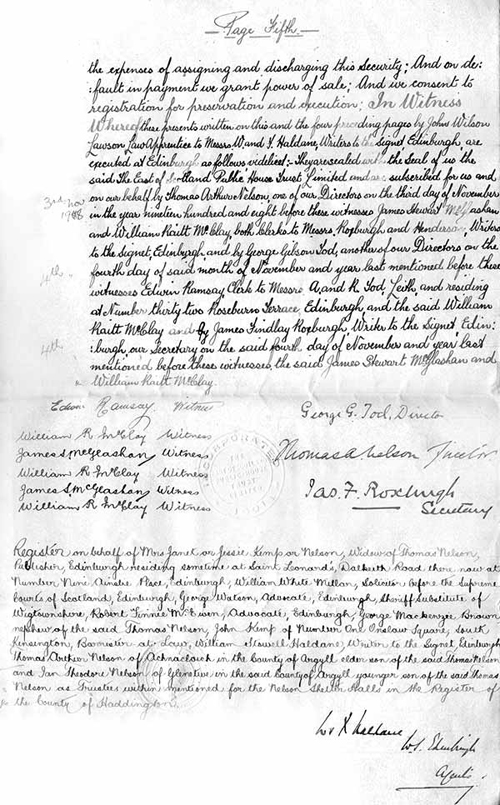 Page Fifth
the expenses of assigning and discharging this security; And on de:
:fault in payment we grant power of sale; And we consent to
registration for preservation and execution; In Witness
Whereof these presents written on this and the four preceding pages by John Wilson
Lawson Law Apprentice to Messrs W. and F. Haldane, Writers to the Signet, Edinburgh, are
executed at Edinburgh as follows videlicet:- They are sealed with the Seal of us the
said The East of Scotland Public House Trust Limited and are subscribed for us and
on our behalf by Thomas Arthur Nelson, one of our Directors on the third day of November
3rd Nov
1908
in the year nineteen hundred and eight before these witnesses James Stewart McGlashan
and William Raitt McClay both Clerks to Messrs Roxburgh and Henderson, Writers
to the Signet, Edinburgh and by George Gibson Tod, another of our Directors on the
4th "
fourth day of said month of November and year last mentioned before these
witnesses Edwin Ramsay Clerk to Messrs A. and R. Tod, Leith, and residing
at Number thirty two Roseburn Terrace, Edinburgh, and the said William
Raitt McClay and by James Findlay Roxburgh, Writer to the Signet, Edin:
4th "
:burgh, our Secretary on the said fourth day of November and year last
mentioned before these witnesses, the said James Stewart McGlashan and
William Raitt McClay
Edwin Ramsay Witness
George G. Tod, Director
William R McClay Witness
James S McGlashan Witness
Thomas A Nelson Director
William R McClay Witness
James S McGlashan Witness
Jas. F. Roxburgh
William R McClay Witness
Secretary
Register on behalf of Mrs Janet or Jessie Kemp or Nelson, Widow of Thomas Nelson,
Publisher, Edinburgh residing sometime at Saint Leonard's, Dalkeith Road there now at
Number Nine Ainslie Place, Edinburgh, William White Millar, Solicitor before the Supreme
Courts of Scotland, Edinburgh, George Watson, Advocate, Edinburgh, Sheriff Substitute of
Wigtownshire, Robert Finnie McEwen, Advocate, Edinburgh, George Mackenzie Brown
nephew of the said Thomas Nelson, John Kemp of Number One Onslow Square, South
Kensington, Barrister at Law, William Stowell Haldane, Writer to the Signet, Edinburgh
Thomas Arthur Nelson of Achnacloich in the County of Argyll older son of the said Thomas Nelson
and Ian Theodore Nelson of Glenetive in the said County of Argyll younger son of the said Thomas
Nelson as Trustees within mentioned for the Nelson Shelter Halls in the Register of
for the County of Haddington.
W & F Haldane
W.S. Edinburgh
Agents